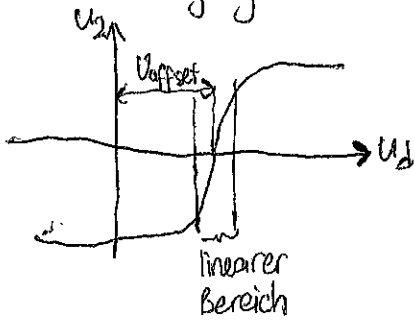 U₂
Uoffset
Ud
linearer
Bereich